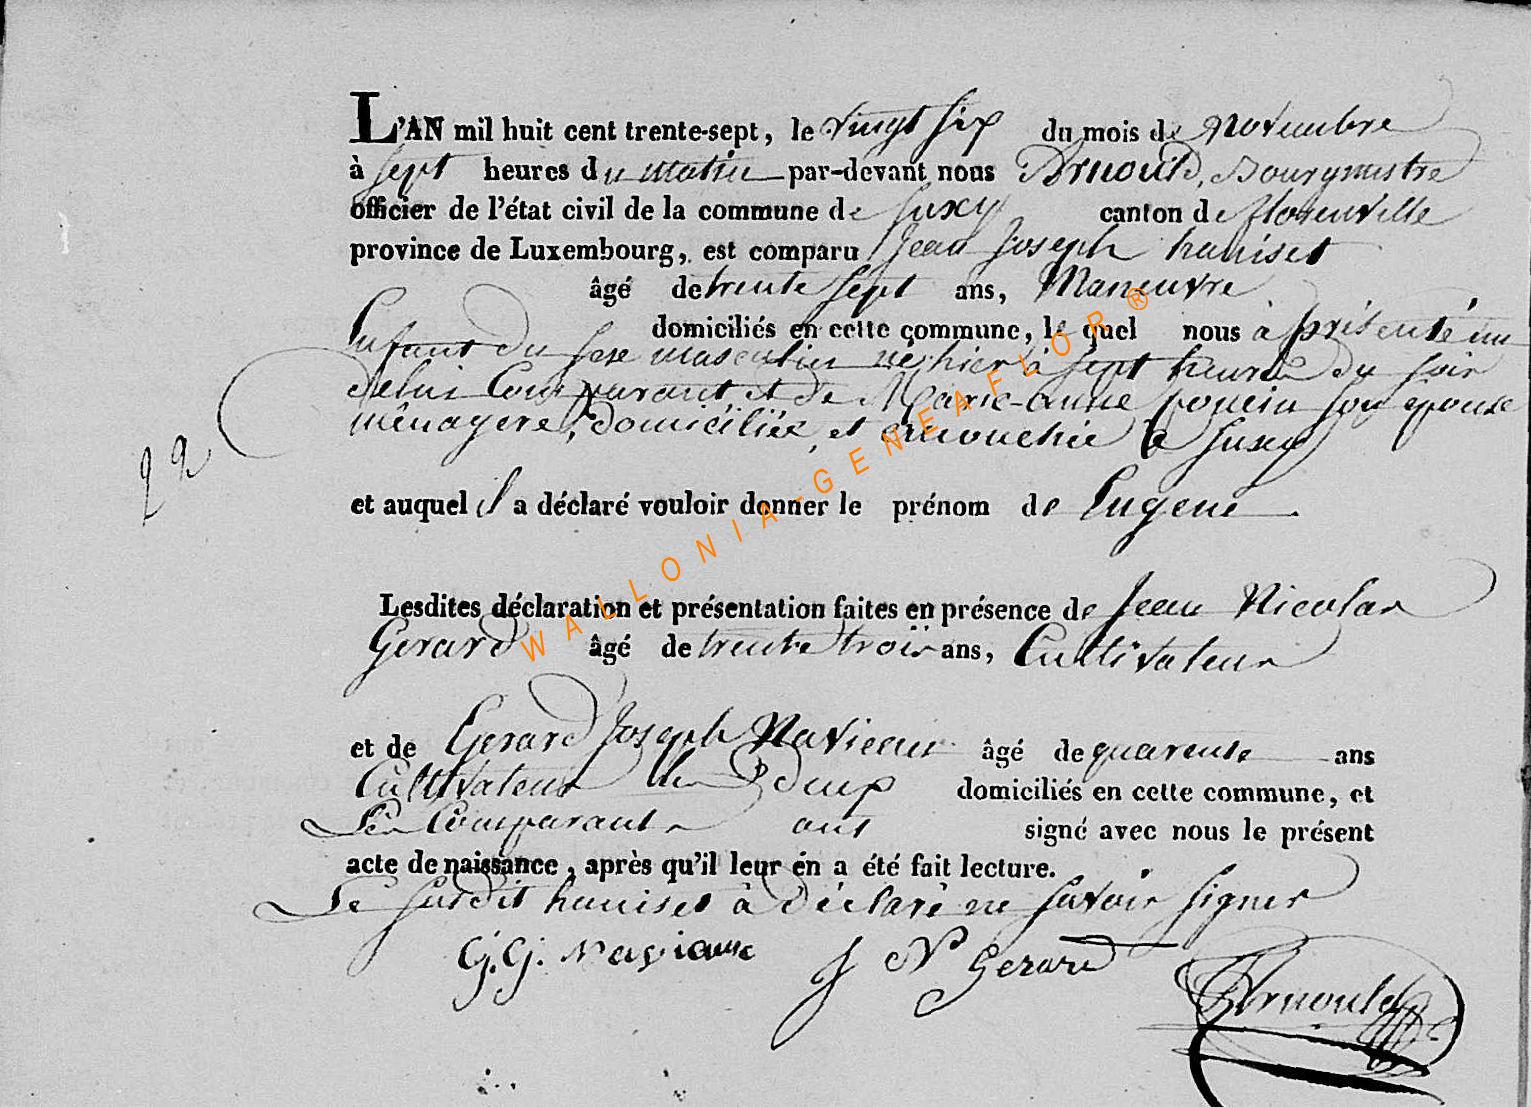 L'AN mil huit cent trente-sept, le vingt six du mois de novembre
à sept heures du matin par-devant nous Arnould, Bourgmestre
officier de l'état civil de la commune de Suxy canton de florenville
province de Luxembourg, est comparu Jean Joseph haniset
âgé de trente sept ans, Maneuvre
domiciliés en cette commune, le quel nous à présenté un
Enfant du sexe masculin né hier à sept heures du soir
delui Comparant, et de Marie-anne poncin son epouse
ménagere, domiciliée, et accouchée à Suxy
22
et auquel il a déclaré vouloir donner le prénom de Eugene
Lesdites déclaration et présentation faites en présence de Jean Nicolas
Gerard âgé de trente trois ans, Cultivateur
et de Gerard Joseph Naviaux âgé de quarente ans
Cultivateur deux domiciliés en cette commune, et
Les Comparants ont signé avec nous le présent
acte de naissance, après qu'il leur en a été fait lecture.
Le susdit haniset à déclaré ne savoir signer
G. G. Naviaux J N Gerard
Arnould
WALLONIA-GENEAFLOR®